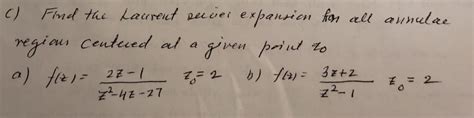 c) Find the Laurent series expansion for all annulae
regions centured at a given point z₀
a) f(z) = 2z-1 / z²-4z-27 z₀ = 2 b) f(z) = 3z+2 / z²-1 z₀ = 2